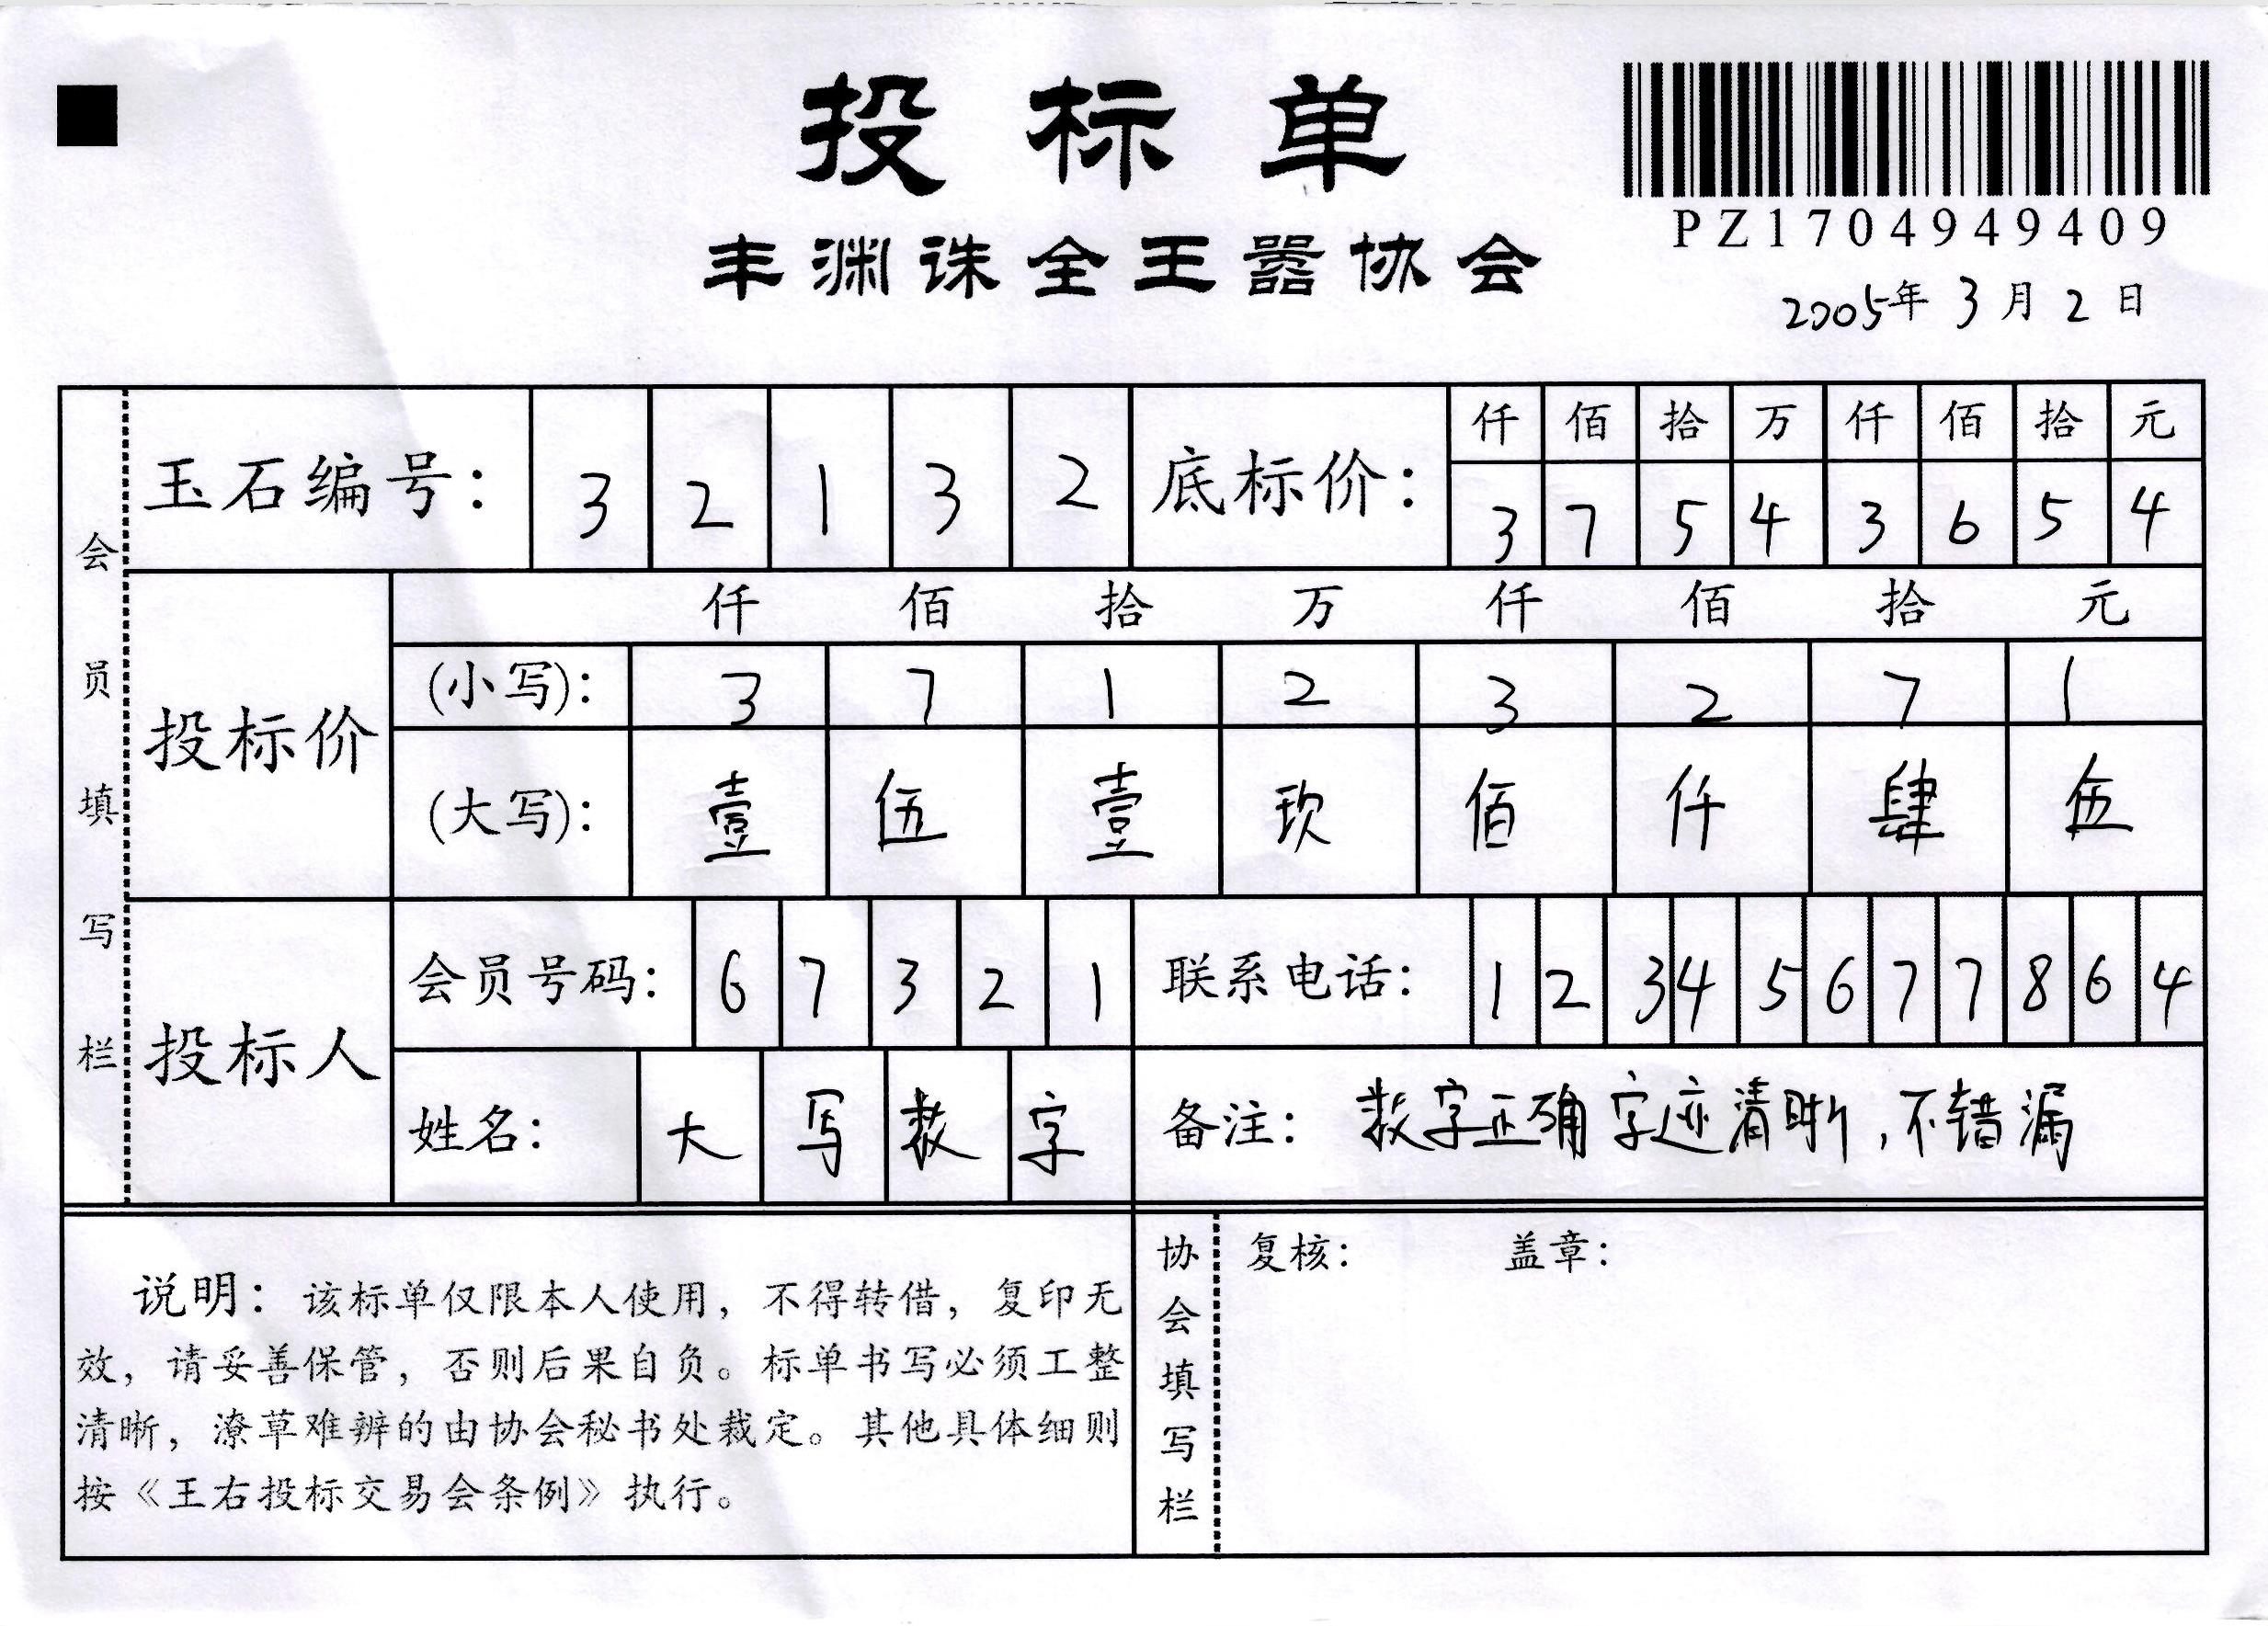 投标单
丰渊诛全王嚣协会
PZ1704949409
2005年3月2日
会员填写栏
玉石编号: 3 2 1 3 2 底标价: 仟 佰 拾 万 仟 佰 拾 元
3 7 5 4 3 6 5 4
投标价 仟 佰 拾 万 仟 佰 拾 元
(小写): 3 7 1 2 3 2 7 1
(大写): 壹 伍 壹 玖 佰 仟 肆 伍
投标人 会员号码: 6 7 3 2 1 联系电话: 1 2 3 4 5 6 7 7 8 6 4
姓名: 大 写 数 字 备注: 数字正确字迹清晰,不错漏
说明: 该标单仅限本人使用, 不得转借, 复印无
效, 请妥善保管, 否则后果自负。标单书写必须工整
清晰, 潦草难辨的由协会秘书处裁定。其他具体细则
按《王右投标交易会条例》执行。
协会填写栏
复核: 盖章: